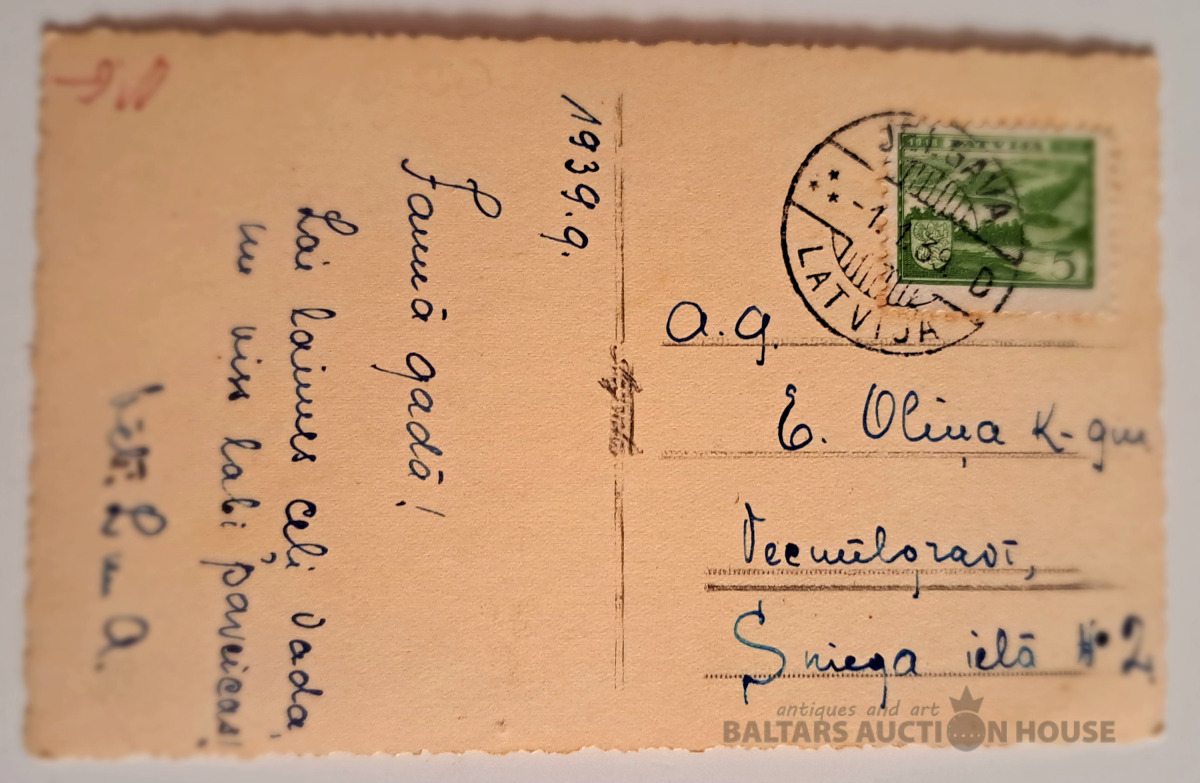 1939.g.
Jaunā gadā!
Lai laimes ceļi vada,
un viss labi paveicas!
L un A.
JELGAVA
-1. 1 39 D
LATVIJA
LATVIJA
5
A. g.
E. Oliņa K-gm
Vecmīlgrāvī,
Sniega ielā № 2
antiques and art
BALTARS AUCTION HOUSE